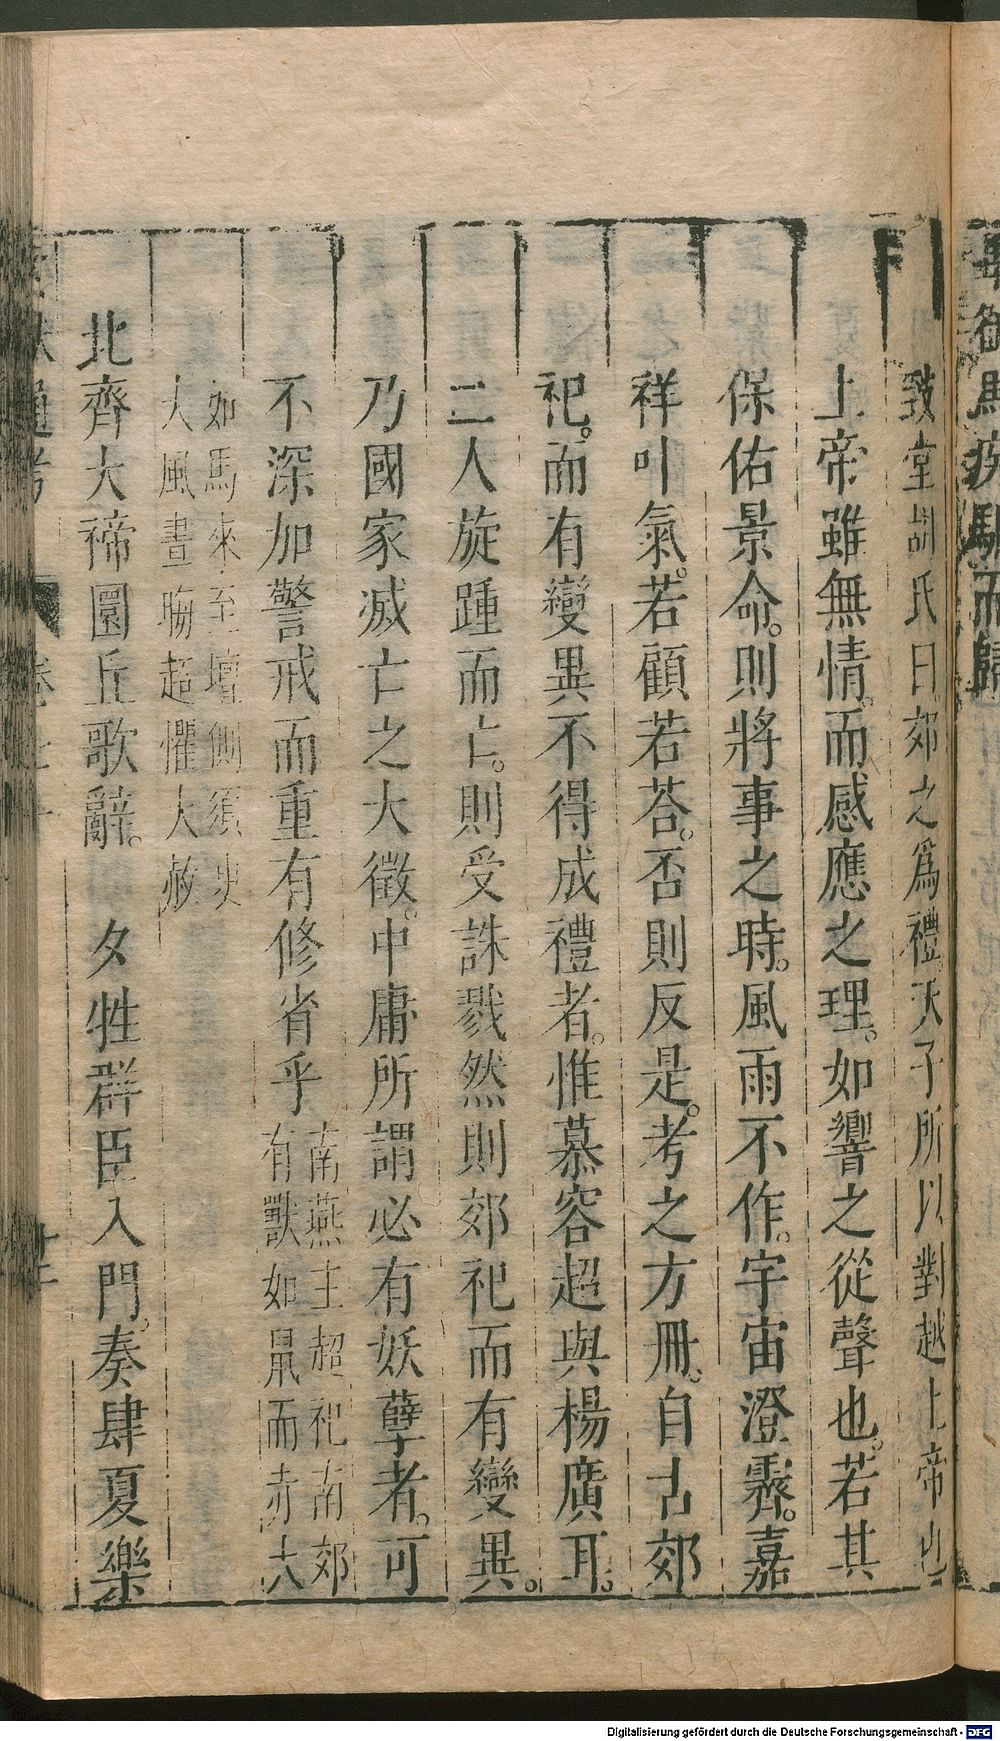 年御馬疾驅而歸
致堂胡氏曰郊之爲禮天子所以對越上帝也
上帝雖無情。而感應之理。如響之從聲也。若其
保佑景命。則將事之時。風雨不作。宇宙澄霽。嘉
祥叶氣。若顧若荅。否則反是。考之方冊。自古郊
祀。而有變異不得成禮者。惟慕容超與楊廣耳。
二人旋踵而亡。則受誅戮然則郊祀而有變異。
乃國家滅亡之大徵。中庸所謂必有妖孽者。可
不深加警戒而重有修省乎
南燕主超祀南郊
有獸如鼠而赤大
如馬來至壇側須臾
大風晝晦超懼大赦
北齊大禘圜丘歌辭。 夕牲群臣入門。奏肆夏樂
文獻通考 卷七十 廿二
Digitalisierung gefördert durch die Deutsche Forschungsgemeinschaft - DFG